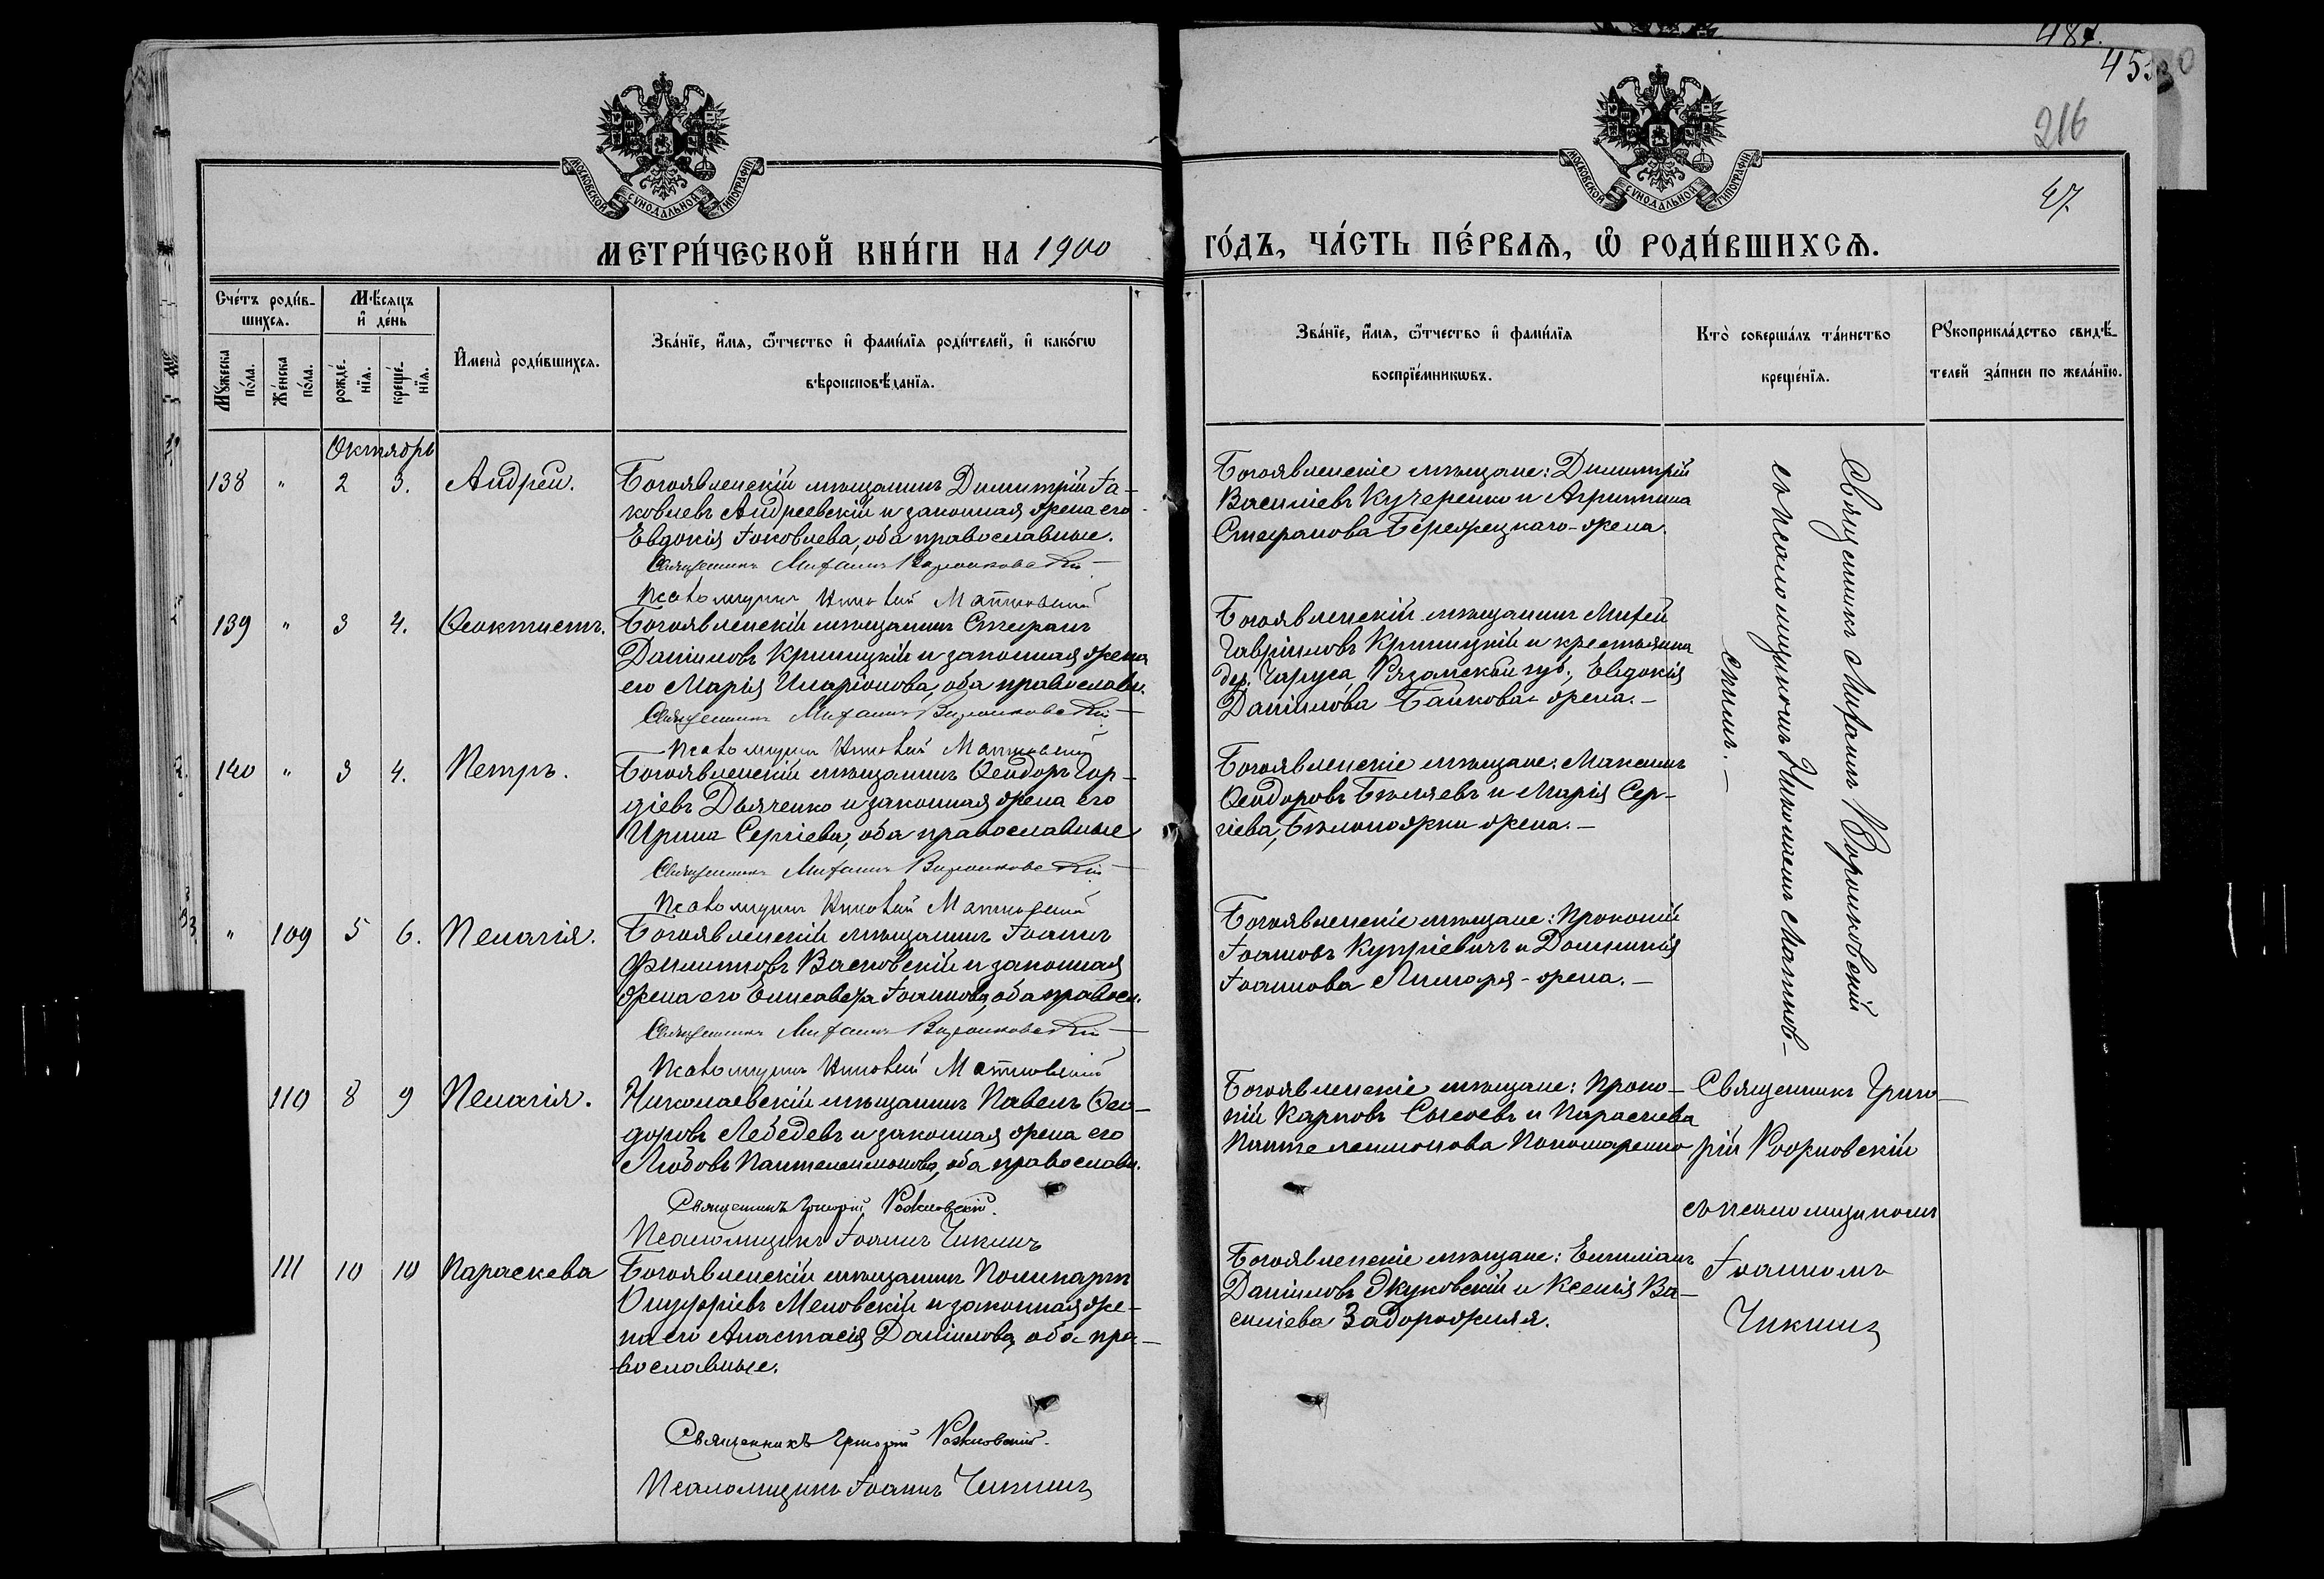 487.
45
216
47
МОСКОВСКОЙ СѴНОДАЛЬНОЙ ТИПОГРАФІИ
МОСКОВСКОЙ СѴНОДАЛЬНОЙ ТИПОГРАФІИ
МЕТРИ́ЧЕСКОЙ КНИ́ГИ НА 1900
ГО́ДЪ, ЧА́СТЬ ПЕ́РВАѦ, Ѽ РОДИ́ВШИХСѦ.
Сче́тъ роди́в-
шихсѧ.
Мѣ́сѧцъ
и҆ де́нь
Мꙋ́жеска по́ла.
Же́нска по́ла.
рожде́-
нїѧ.
креще́-
нїѧ.
И҆мена̀ роди́вшихсѧ.
Зва́нїе, и҆́мѧ, ѻ҆́тчество и҆ фами́лїѧ роди́телей, и҆ како́гѡ
вѣроисповѣ́данїѧ.
Зва́нїе, и҆́мѧ, ѻ҆́тчество и҆ фами́лїѧ
воспрїе́мникѡвъ.
Кто̀ соверша́лъ та́инство
креще́нїѧ.
Рꙋкоприкла́дство свидѣ́-
телей за́писи по жела́нїю.
Октябрь
138 " 2 3. Андрей.
Богоявленскій мѣщанинъ Димитрій Іа-
ковлевъ Андреевскій и законная жена его
Евдокія Іаковлева, оба православные.
Священникъ Михаилъ Воронковскій
Псаломщикъ Николай Матковскій
Богоявленскіе мѣщане: Димитрій
Василіевъ Кучеренко и Агриппина
Стефанова Бережецкаго-жена.
139 " 3 4. Ѳеоктистъ.
Богоявленскій мѣщанинъ Стефанъ
Даніиловъ Криницкій и законная жена
его Марія Иларіонова, оба православн.
Священникъ Михаилъ Воронковскій
Псаломщикъ Николай Матковскій
Богоявленскій мѣщанинъ Михей
Гавріиловъ Криницкій и крестьянка
дер. Чаруса, Рязанской губ., Евдокія
Даніилова Банкова-жена.-
140 " 3 4. Петръ.
Богоявленскій мѣщанинъ Ѳеодоръ Гор-
діевъ Дьяченко и законная жена его
Ирина Сергіева, оба православные
Священникъ Михаилъ Воронковскій
Псаломщикъ Николай Матковскій
Богоявленскіе мѣщане: Максимъ
Ѳеодоровъ Бѣляевъ и Марія Сер-
гіева, Бѣлоножки жена.-
" 109 5 6. Пелагія.
Богоявленскій мѣщанинъ Іоаннъ
Филипповъ Васковскій и законная
жена его Елисавета Іоаннова, оба правосл.
Священникъ Михаилъ Воронковскій
Псаломщикъ Николай Матковскій
Богоявленскіе мѣщане: Прокопій
Іоанновъ Купріевичъ и Домникія
Іоаннова Лимаря-жена.-
Священникъ Михаилъ Воронковскій
съ псаломщикомъ Николаемъ Матков-
скимъ.-
110 8 9 Пелагія.
Николаевскій мѣщанинъ Павелъ Ѳео-
доровъ Лебедевъ и законная жена его
Любовь Пантелеимонова, оба православн.
Священникъ Григорій Рожновскій.
Псаломщикъ Іоаннъ Чикинъ
Богоявленскіе мѣщане: Проко-
пій Карповъ Сысоевъ и Параскева
Пантелеимонова Пономаренко
Священникъ Григо-
рій Рожновскій
съ псаломщикомъ
Іоанномъ
Чикинъ
111 10 10 Параскева
Богоявленскій мѣщанинъ Поликарпъ
Онуфріевъ Меловскій и законная же-
на его Анастасія Даніилова, оба пра-
вославные.
Священникъ Григорій Рожновскій.
Псаломщикъ Іоаннъ Чикинъ
Богоявленскіе мѣщане: Емиліанъ
Даніиловъ Жуковскій и Ксенія Ва-
силіева Задорожняя.